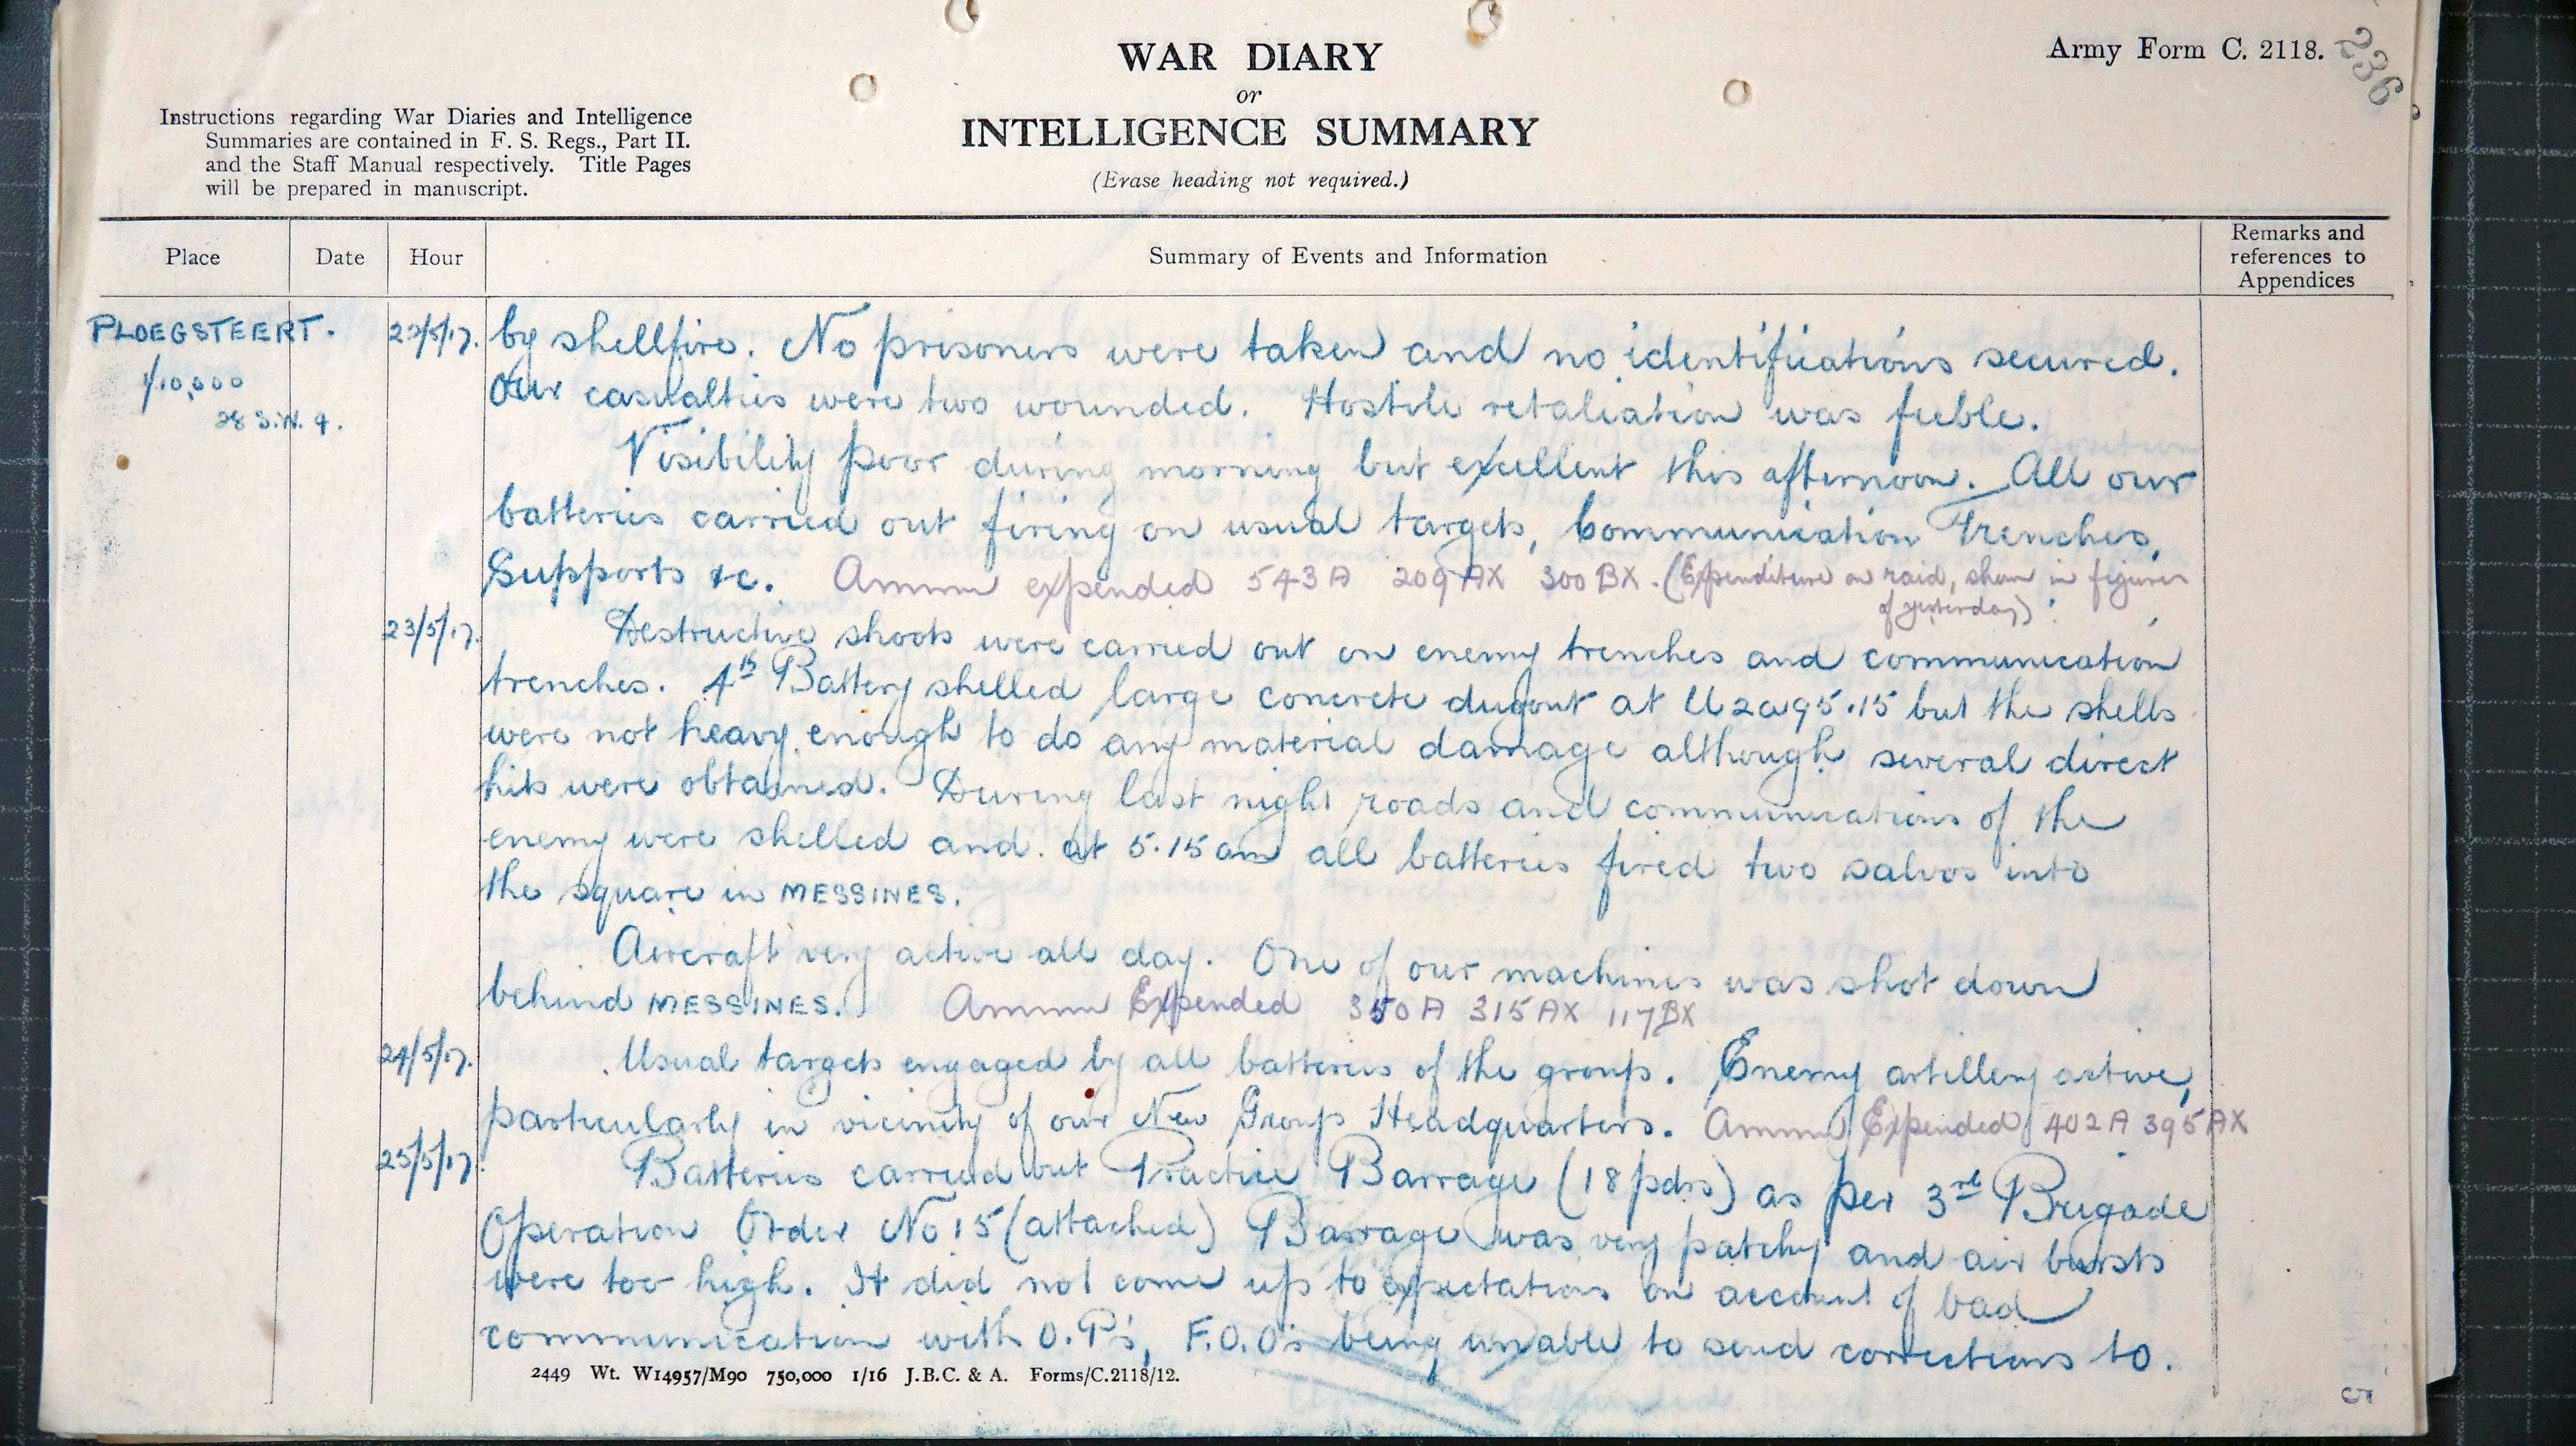 WAR DIARY
or
INTELLIGENCE SUMMARY
(Erase heading not required.)
Army Form C. 2118.
236
Instructions regarding War Diaries and Intelligence
Summaries are contained in F. S. Regs., Part II.
and the Staff Manual respectively. Title Pages
will be prepared in manuscript.
Place Date Hour Summary of Events and Information Remarks and references to Appendices
PLOEGSTEERT.
1/10,000
28 S.W. 4.
22/5/17. by shellfire. No prisoners were taken and no identifications secured.
Our casualties were two wounded. Hostile retaliation was feeble.
Visibility poor during morning but excellent this afternoon. All our
batteries carried out firing on usual targets, Communication Trenches,
Supports &c. Ammn expended 543 A 209 AX 300 BX. (Expenditure on raid, shown in figures
of yesterday).
23/5/17. Destructive shoots were carried out on enemy trenches and communication
trenches. 4th Battery shelled large concrete dugout at U2a95.15 but the shells
were not heavy enough to do any material damage although several direct
hits were obtained. During last night roads and communications of the
enemy were shelled and at 5.15 am all batteries fired two salvos into
the square in MESSINES.
Aircraft very active all day. One of our machines was shot down
behind MESSINES. Ammn Expended 350 A 315 AX 117 BX
24/5/17. Usual targets engaged by all batteries of the group. Enemy artillery active,
particularly in vicinity of our New Group Headquarters. Ammn Expended 402 A 395 AX
25/5/17. Batteries carried out Practice Barrage (18 pdrs) as per 3rd Brigade
Operation Order No 15 (attached) Barrage was very patchy and air bursts
were too high. It did not come up to expectations on account of bad
communication with O.P's, F.O.O's being unable to send corrections to.
2449 Wt. W14957/M90 750,000 1/16 J.B.C. & A. Forms/C.2118/12.